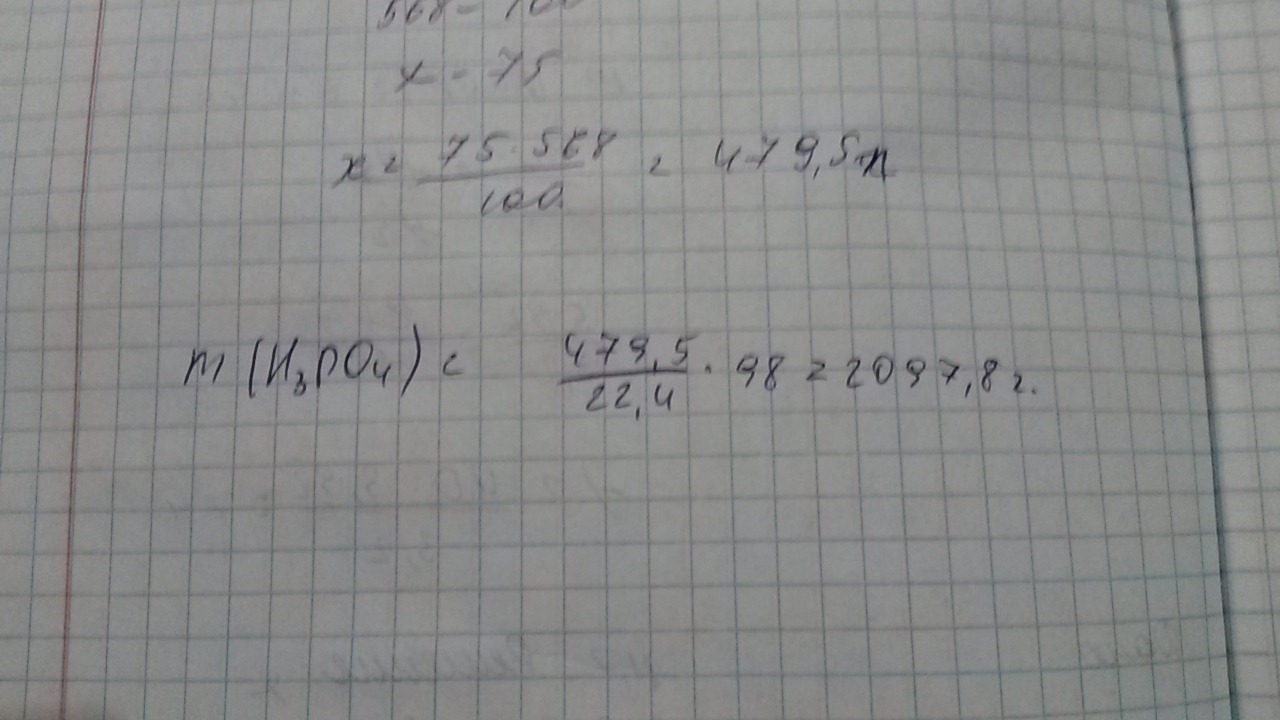 568 - 100
x - 75
x = 75·568 / 100 = 479,5 л
m (H₃PO₄) = 479,5 / 22,4 · 98 = 2097,8 г.